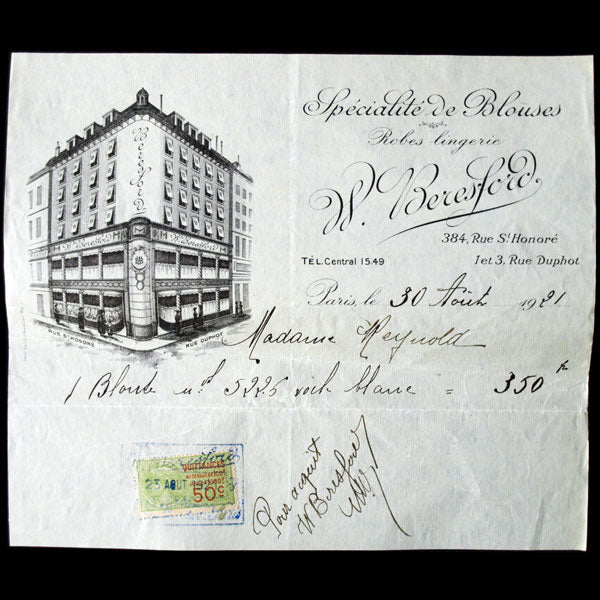 Spécialité de Blouses
Robes lingerie
W. Beresford
384, Rue St Honoré
TÉL. Central 15.49
1 et 3, Rue Duphot
Beresford
W. Beresford
W. Beresford
RUE St HONORÉ
RUE DUPHOT
Paris, le 30 Août 1921
Madame Reynold
1 Blouse mod 5225 voile blanc = 350 fr
QUITTANCES
23 AOUT 192
50c
Pour acquit
W Beresford